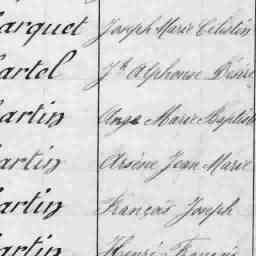 arquet Joseph Marie Célestin
artel Jh Alphonse Désiré
artin Ange Marie Baptiste
artin Arsène Jean Marie
artin François Joseph
artin Henri François